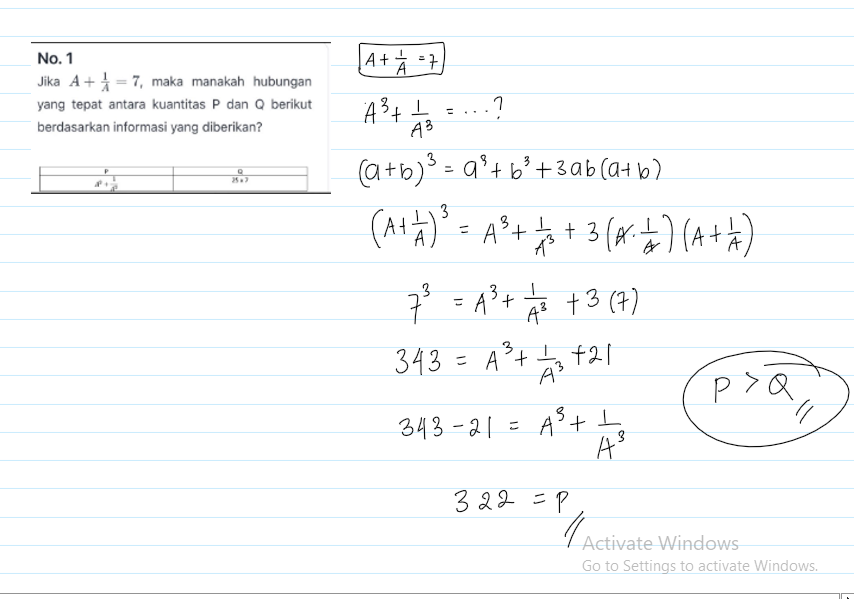 No. 1
Jika A + 1/A = 7, maka manakah hubungan
yang tepat antara kuantitas P dan Q berikut
berdasarkan informasi yang diberikan?
P Q
25 × 7
A + 1/A = 7
A³ + 1/A³ = ...?
(a+b)³ = a³ + b³ + 3ab(a+b)
(A + 1/A)³ = A³ + 1/A³ + 3(A · 1/A)(A + 1/A)
7³ = A³ + 1/A³ + 3(7)
343 = A³ + 1/A³ + 21
P > Q
343 - 21 = A³ + 1/A³
322 = P
Activate Windows
Go to Settings to activate Windows.